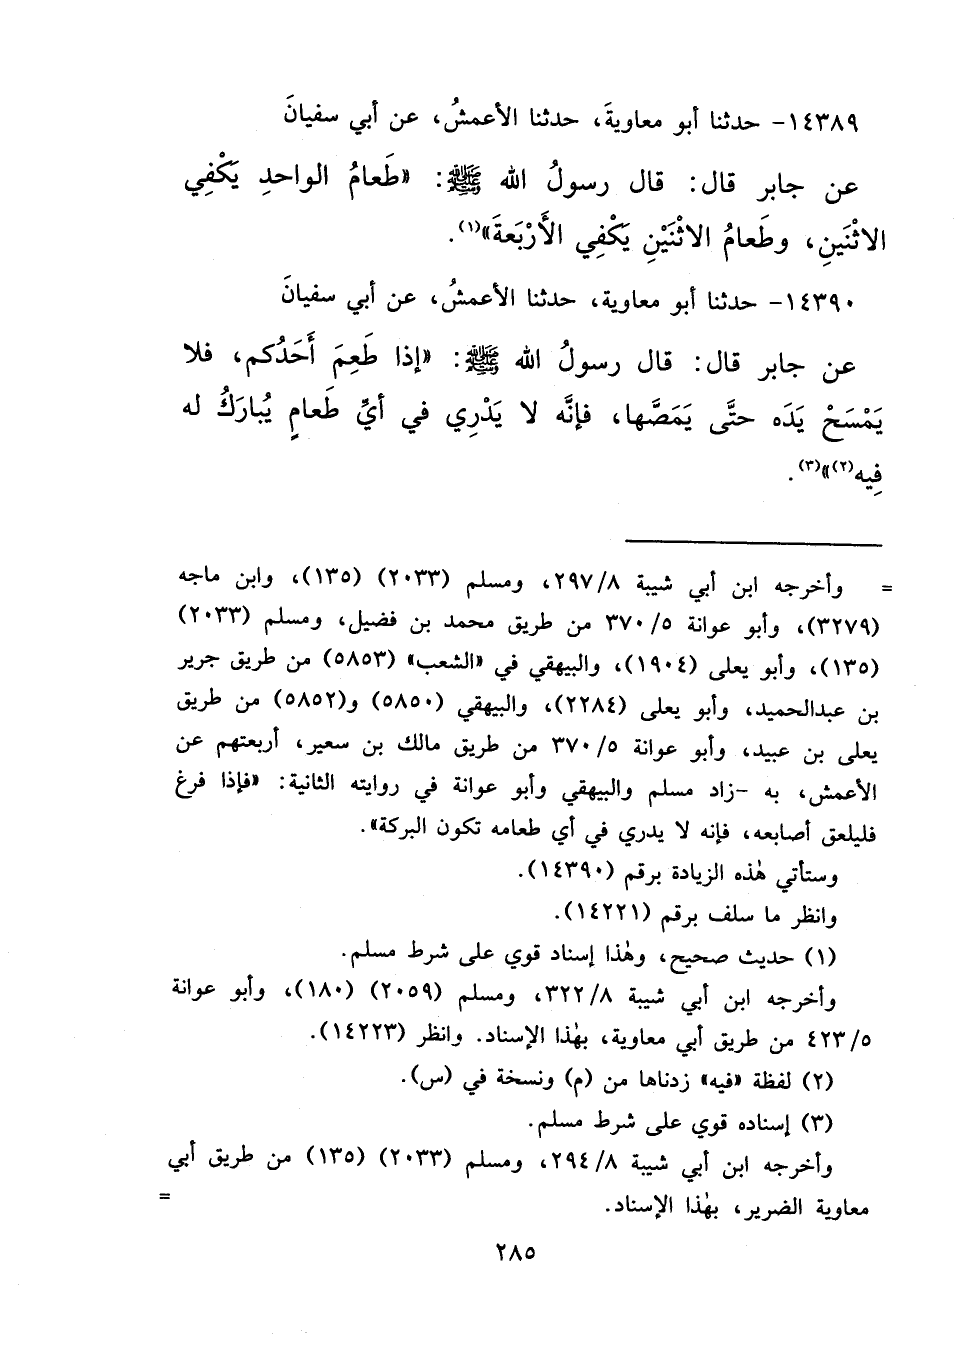 ١٤٣٨٩- حدثنا أبو معاويةَ، حدثنا الأعمشُ، عن أبي سفيانَ
عن جابر قال: قال رسولُ الله ﷺ: «طَعامُ الواحدِ يَكْفِي
الاثْنَينِ، وطَعامُ الاثْنَيْنِ يَكْفِي الأَرْبَعةَ»(١).
١٤٣٩٠- حدثنا أبو معاوية، حدثنا الأعمشُ، عن أبي سفيانَ
عن جابر قال: قال رسولُ الله ﷺ: «إذا طَعِمَ أَحَدُكم، فلا
يَمْسَحْ يَدَه حتَّى يَمَصَّها، فإنَّه لا يَدْرِي في أيِّ طَعامٍ يُبارَكُ له
فِيه(٢)»(٣).
= وأخرجه ابن أبي شيبة ٢٩٧/٨، ومسلم (٢٠٣٣) (١٣٥)، وابن ماجه
(٣٢٧٩)، وأبو عوانة ٣٧٠/٥ من طريق محمد بن فضيل، ومسلم (٢٠٣٣)
(١٣٥)، وأبو يعلى (١٩٠٤)، والبيهقي في «الشعب» (٥٨٥٣) من طريق جرير
بن عبدالحميد، وأبو يعلى (٢٢٨٤)، والبيهقي (٥٨٥٠) و(٥٨٥٢) من طريق
يعلى بن عبيد، وأبو عوانة ٣٧٠/٥ من طريق مالك بن سعير، أربعتهم عن
الأعمش، به -زاد مسلم والبيهقي وأبو عوانة في روايته الثانية: «فإذا فرغ
فليلعق أصابعه، فإنه لا يدري في أي طعامه تكون البركة».
وستأتي هٰذه الزيادة برقم (١٤٣٩٠).
وانظر ما سلف برقم (١٤٢٢١).
(١) حديث صحيح، وهٰذا إسناد قوي على شرط مسلم.
وأخرجه ابن أبي شيبة ٣٢٢/٨، ومسلم (٢٠٥٩) (١٨٠)، وأبو عوانة
٤٢٣/٥ من طريق أبي معاوية، بهٰذا الإسناد. وانظر (١٤٢٢٣).
(٢) لفظة «فيه» زدناها من (م) ونسخة في (س).
(٣) إسناده قوي على شرط مسلم.
وأخرجه ابن أبي شيبة ٢٩٤/٨، ومسلم (٢٠٣٣) (١٣٥) من طريق أبي
معاوية الضرير، بهٰذا الإسناد. =
٢٨٥